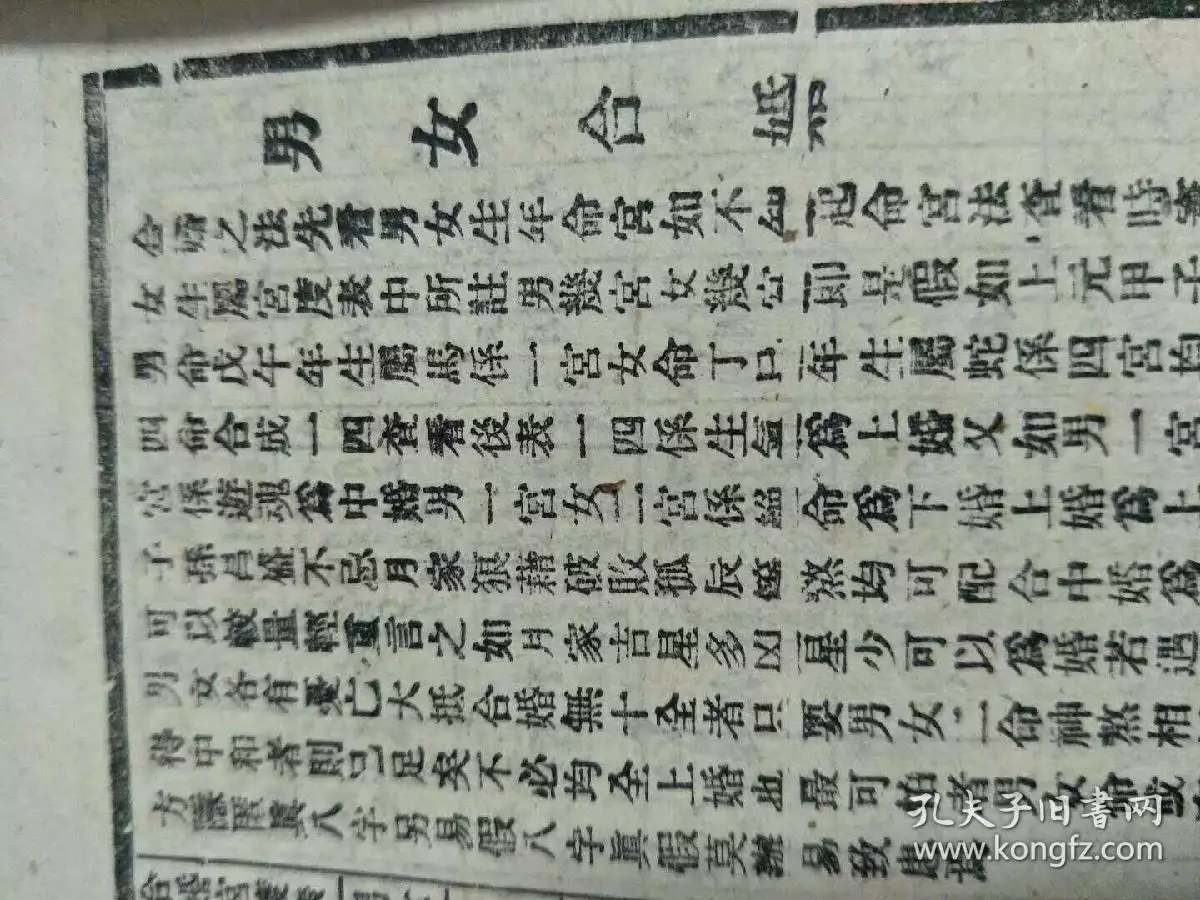 男女合婚
合婚之法先看男女生年命宮如不知起命宮法查看時憲
女生屬宮度表中所註男幾宮女幾宮即是假如上元甲子
男命戊午年生屬馬係一宮女命丁巳年生屬蛇係四宮均
四命合成一四查看後表一四係生氣爲上婚又如男一宮
宮係遊魂爲中婚男一宮女二宮係絕命爲下婚上婚爲上
子孫昌盛不忌月家狼藉破敗孤辰等煞均可配合中婚爲
可以較量輕重言之如月家吉星多凶星少可以爲婚若遇
男女各有憂亡大抵合婚無十全者只要男女二命神煞相
得中和者則已足矣不必均全上婚也最可怕者男女命或
方隱匿真八字另易假八字眞假莫辦易致
合婚宮度表
孔夫子旧书网
www.kongfz.com